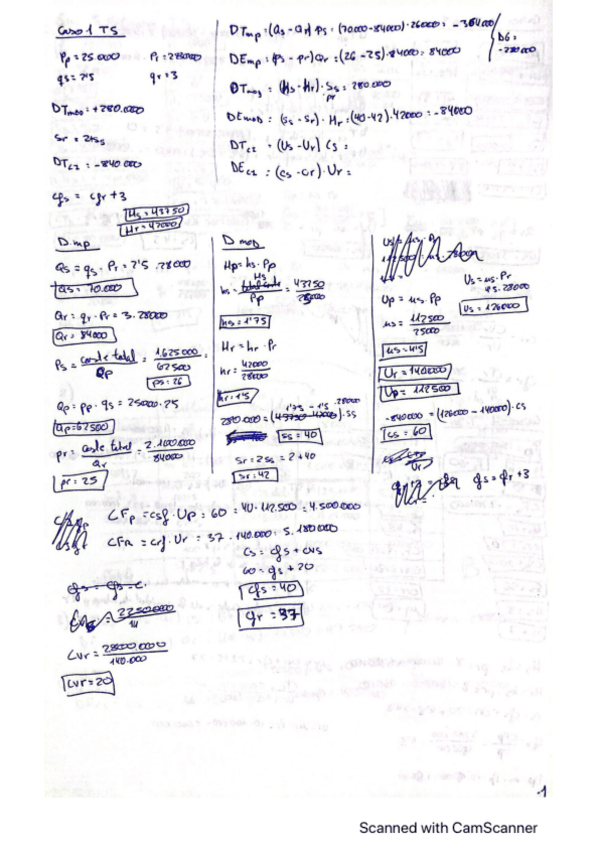 Caso 1 TS
Pp = 25.000 Pr = 28000
qs = 2'5 qr = 3
DTmod = +280.000
Sr = 2+Ss
DTcz = -840.000
cfs = cfr + 3
Hs = 43750
Hr = 42000
DTmp = (Qs - Qr) Ps = (70.000 - 84000) · 26000 = -364000
DEmp = (Ps - Pr) Qr = (26 - 25) · 84000 = 84000
DG = -280.000
DTmod = (Hs - Hr) · Ss = 280.000
DEmod = (Ss - Sr) · Hr = (40 - 42) · 42000 = -84000
DTcz = (Us - Ur) Cs =
DEcz = (Cs - Cr) · Ur =
D mp
Qs = qs · Pr = 2'5 · 28000
Qs = 70.000
Qr = qr · Pr = 3 · 28000
Qr = 84000
Ps = coste total / Qp = 1.625000 / 62500
ps = 26
Qp = Pp · qs = 25000 · 2'5
Qp = 62500
pr = coste total / Qr = 2.100.000 / 84000
pr = 25
D mod
Hp = hs · Pp
hs = Hs / Pp = 43750 / 25000
hs = 1'75
Hr = hr · Pr
hr = 42000 / 28000
hr = 1'5
1'75 - 1'5 · 28000
280.000 = (43750 - 42000) · Ss
Ss = 40
Sr = 2+Ss = 2+40
Sr = 42
Us = us · Pr
4'5 · 28000
Us = 126000
Up = us · Pp
us = 112500 / 25000
us = 4'5
Ur = 140000
Up = 112500
-840000 = (126000 - 140000) · Cs
Cs = 60
qs = qr + 3
CFp = csf · Up = 60 = 40 · 112.500 = 4.500.000
CFR = crf · Ur = 37 · 140.000 = 5.180000
Cs = cfs + cvs
60 = cfs + 20
cfs = 40
cfr = 37
2250.000
Cvr = 2800.000 / 140.000
Cvr = 20
1
Scanned with CamScanner